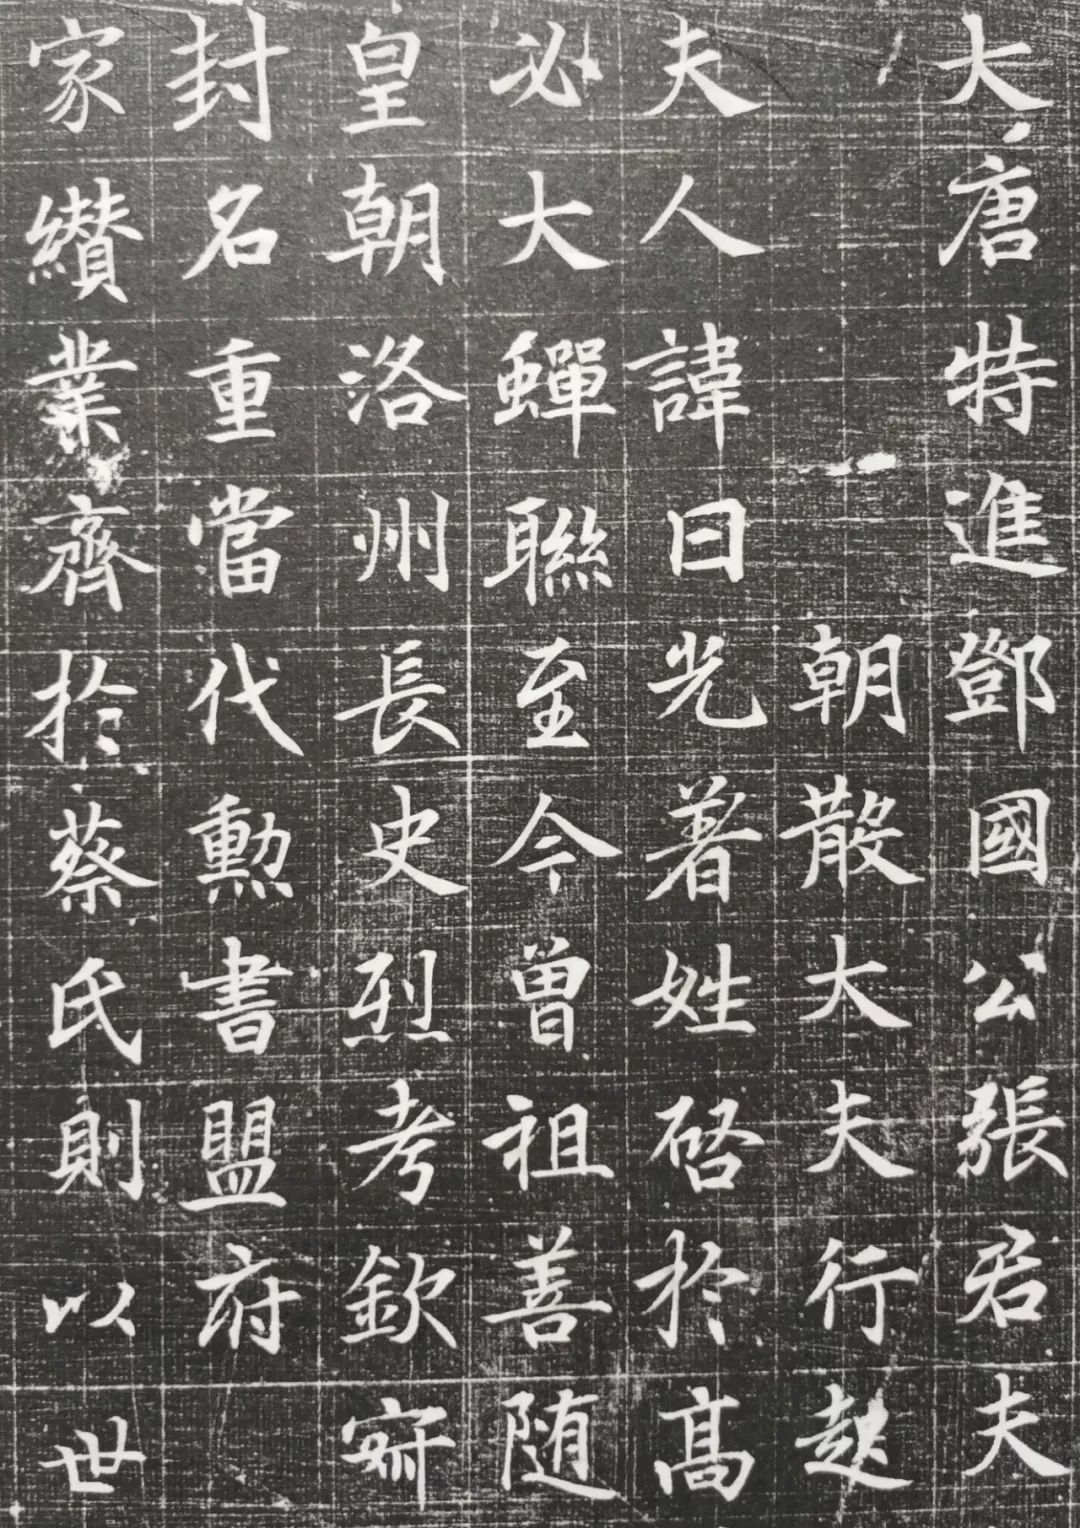 大唐特進鄧國公張君夫
朝散大夫行趙
夫人諱曰光著姓啓於高
必大蟬聯至今曾祖善隨
皇朝洛州長史烈考欽
封名重當代勳書盟府
家纘業齊於蔡氏則以世